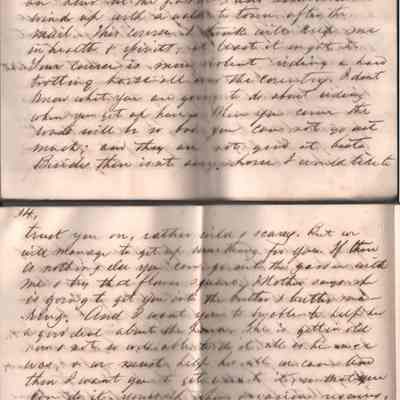 an hour in the
wind up with a walk to town after the
mail. This course I think will keep me
in health & spirits, at least it ought to.
Your course is more violent riding a hard
trotting horse all over the country. I don't
know what you are going to do about riding
when you get up here. When you come the
roads will be so bad you can not go out
much; and they are not good at best.
Besides there isn't any horse I would like to
14,
trust you on, rather wild & scarey. But we
will manage to get up something for you. If there
is nothing else you can go into the garden with
me & try that flower square. Mother says she
is going to get you into the butter & butter ma-
king. And I want you to be able to help her
a good deal about the house. She is getting old
now & not so well able to do it all as she once
was, & we must help her all we can. And
then I want you to get used to it so that you
can do it yourself